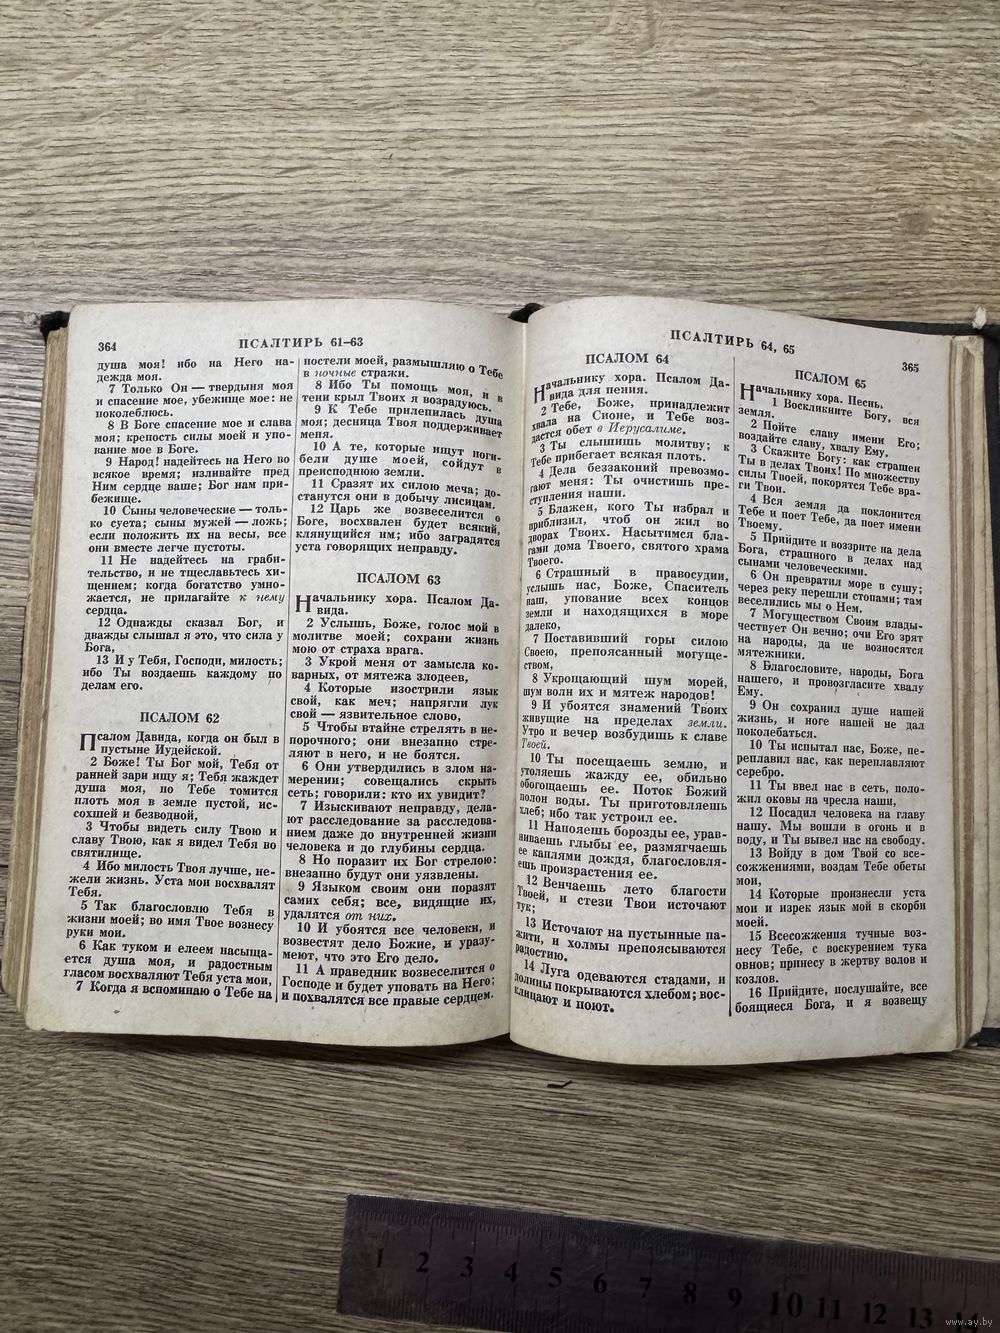 364
ПСАЛТИРЬ 61–63
душа моя! ибо на Него на-
дежда моя.
7 Только Он — твердыня моя
и спасение мое, убежище мое: не
поколеблюсь.
8 В Боге спасение мое и слава
моя; крепость силы моей и упо-
вание мое в Боге.
9 Народ! надейтесь на Него во
всякое время; изливайте пред
Ним сердце ваше; Бог нам при-
бежище.
10 Сыны человеческие — толь-
ко суета; сыны мужей — ложь;
если положить их на весы, все
они вместе легче пустоты.
11 Не надейтесь на граби-
тельство, и не тщеславьтесь хи-
щением; когда богатство умно-
жается, не прилагайте к нему
сердца.
12 Однажды сказал Бог, и
дважды слышал я это, что сила у
Бога,
13 И у Тебя, Господи, милость;
ибо Ты воздаешь каждому по
делам его.
ПСАЛОМ 62
Псалом Давида, когда он был в
пустыне Иудейской.
2 Боже! Ты Бог мой, Тебя от
ранней зари ищу я; Тебя жаждет
душа моя, по Тебе томится
плоть моя в земле пустой, ис-
сохшей и безводной,
3 Чтобы видеть силу Твою и
славу Твою, как я видел Тебя во
святилище.
4 Ибо милость Твоя лучше, не-
жели жизнь. Уста мои восхвалят
Тебя.
5 Так благословлю Тебя в
жизни моей; во имя Твое вознесу
руки мои.
6 Как туком и елеем насыща-
ется душа моя, и радостным
гласом восхваляют Тебя уста мои,
7 Когда я вспоминаю о Тебе на
постели моей, размышляю о Тебе
в ночные стражи.
8 Ибо Ты помощь моя, и в
тени крыл Твоих я возрадуюсь.
9 К Тебе прилепилась душа
моя; десница Твоя поддерживает
меня.
10 А те, которые ищут поги-
бели душе моей, сойдут в
преисподнюю земли.
11 Сразят их силою меча; до-
станутся они в добычу лисицам.
12 Царь же возвеселится о
Боге, восхвален будет всякий,
клянущийся им; ибо заградятся
уста говорящих неправду.
ПСАЛОМ 63
Начальнику хора. Псалом Да-
вида.
2 Услышь, Боже, голос мой в
молитве моей; сохрани жизнь
мою от страха врага.
3 Укрой меня от замысла ко-
варных, от мятежа злодеев,
4 Которые изострили язык
свой, как меч; напрягли лук
свой — язвительное слово,
5 Чтобы втайне стрелять в не-
порочного; они внезапно стре-
ляют в него, и не боятся.
6 Они утвердились в злом на-
мерении; совещались скрыть
сеть; говорили: кто их увидит?
7 Изыскивают неправду, дела-
ют расследование за расследова-
нием даже до внутренней жизни
человека и до глубины сердца.
8 Но поразит их Бог стрелою:
внезапно будут они уязвлены.
9 Языком своим они поразят
самих себя; все, видящие их,
удалятся от них.
10 И убоятся все человеки, и
возвестят дело Божие, и уразу-
меют, что это Его дело.
11 А праведник возвеселится о
Господе и будет уповать на Него;
и похвалятся все правые сердцем.
ПСАЛТИРЬ 64, 65
365
ПСАЛОМ 64
Начальнику хора. Псалом Да-
вида для пения.
2 Тебе, Боже, принадлежит
хвала на Сионе, и Тебе воз-
дастся обет в Иерусалиме.
3 Ты слышишь молитву; к
Тебе прибегает всякая плоть.
4 Дела беззаконий превозмо-
гают меня: Ты очистишь пре-
ступления наши.
5 Блажен, кого Ты избрал и
приблизил, чтоб он жил во
дворах Твоих. Насытимся бла-
гами дома Твоего, святого храма
Твоего.
6 Страшный в правосудии,
услышь нас, Боже, Спаситель
наш, упование всех концов
земли и находящихся в море
далеко,
7 Поставивший горы силою
Своею, препоясанный могуще-
ством,
8 Укрощающий шум морей,
шум волн их и мятеж народов!
9 И убоятся знамений Твоих
живущие на пределах земли.
Утро и вечер возбудишь к славе
Твоей.
10 Ты посещаешь землю, и
утоляешь жажду ее, обильно
обогощаешь ее. Поток Божий
полон воды. Ты приготовляешь
хлеб; ибо так устроил ее.
11 Напояешь борозды ее, урав-
ниваешь глыбы ее, размягчаешь
ее каплями дождя, благословля-
ешь произрастения ее.
12 Венчаешь лето благости
Твоей, и стези Твои источают
тук;
13 Источают на пустынные па-
жити, и холмы препоясываются
радостию.
14 Луга одеваются стадами, и
долины покрываются хлебом; вос-
клицают и поют.
ПСАЛОМ 65
Начальнику хора. Песнь.
1 Воскликните Богу, вся
земля.
2 Пойте славу имени Его;
воздайте славу, хвалу Ему.
3 Скажите Богу: как страшен
Ты в делах Твоих! По множеству
силы Твоей, покорятся Тебе вра-
ги Твои.
4 Вся земля да поклонится
Тебе и поет Тебе, да поет имени
Твоему.
5 Прийдите и воззрите на дела
Бога, страшного в делах над
сынами человеческими.
6 Он превратил море в сушу;
через реку перешли стопами; там
веселились мы о Нем.
7 Могуществом Своим влады-
чествует Он вечно; очи Его зрят
на народы, да не возносятся
мятежники.
8 Благословите, народы, Бога
нашего, и провозгласите хвалу
Ему.
9 Он сохранил душе нашей
жизнь, и ноге нашей не дал
поколебаться.
10 Ты испытал нас, Боже, пе-
реплавил нас, как переплавляют
серебро.
11 Ты ввел нас в сеть, поло-
жил оковы на чресла наши,
12 Посадил человека на главу
нашу. Мы вошли в огонь и в
воду, и Ты вывел нас на свободу.
13 Войду в дом Твой со все-
сожжениями, воздам Тебе обеты
мои,
14 Которые произнесли уста
мои и изрек язык мой в скорби
моей.
15 Всесожжения тучные воз-
несу Тебе, с воскурением тука
овнов; принесу в жертву волов и
козлов.
16 Прийдите, послушайте, все
боящиеся Бога, и я возвещу
1 2 3 4 5 6 7 8 9 10 11 12 13 14
www.ay.by